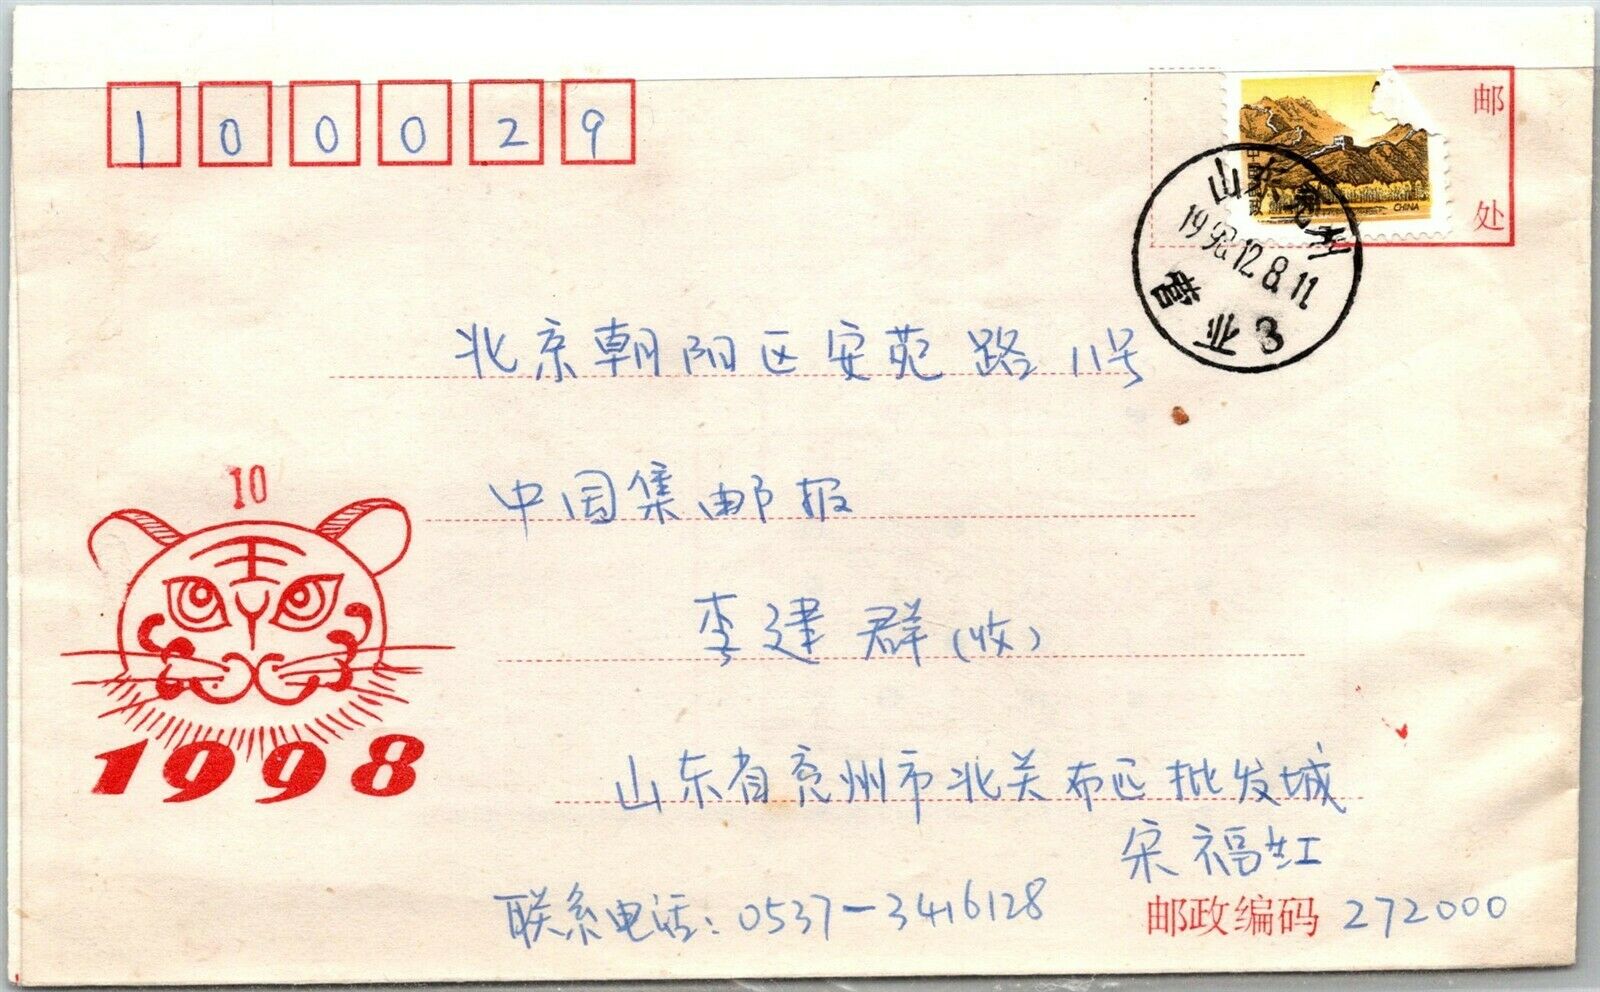 100029
邮
处
中国邮政
CHINA
山东兖州
1998.12.8.11
营业
3
北京朝阳区安苑路11号
中国集邮报
李建群(收)
10
1998
山东省兖州市北关布匹批发城
宋福红
联系电话:0537-3416128
邮政编码 272000